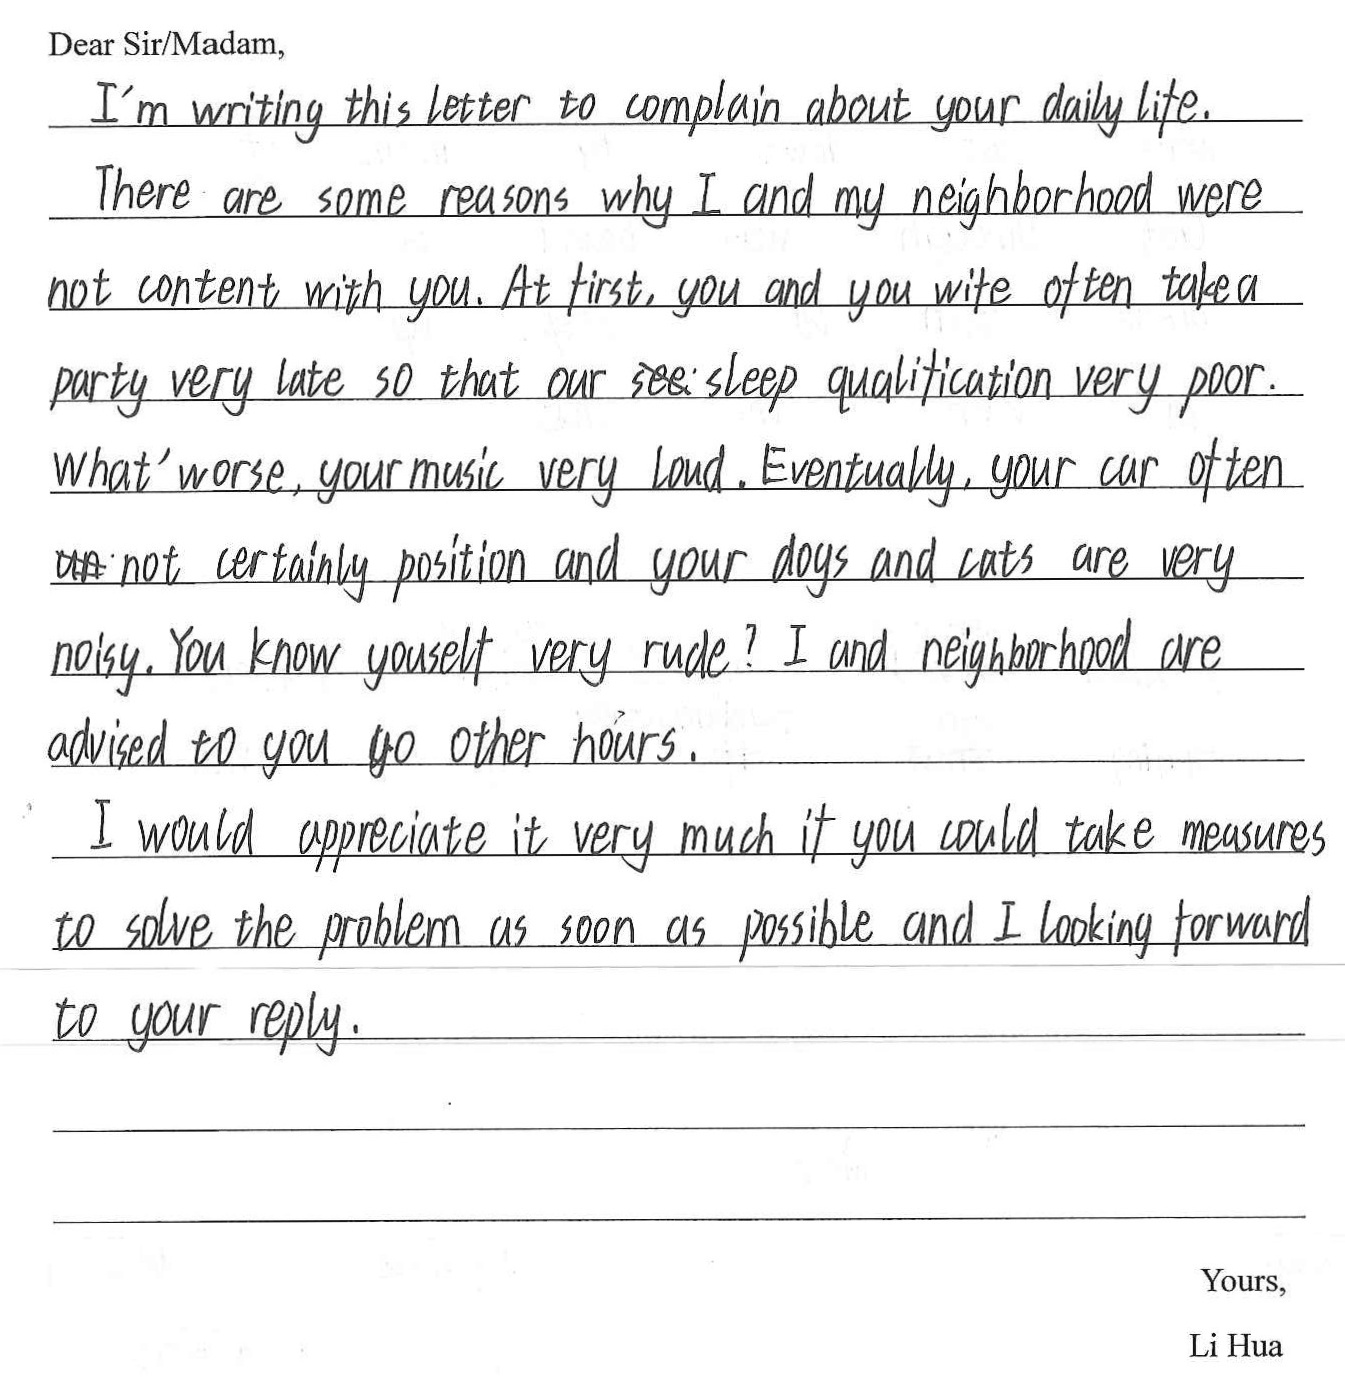 Dear Sir/Madam,
I'm writing this letter to complain about your daily life.
There are some reasons why I and my neighborhood were
not content with you. At first, you and you wife often take a
party very late so that our sleep qualification very poor.
What' worse, your music very loud. Eventually, your car often
not certainly position and your dogs and cats are very
noisy. You know youself very rude? I and neighborhood are
advised to you go other hours.
I would appreciate it very much if you could take measures
to solve the problem as soon as possible and I looking forward
to your reply.
Yours,
Li Hua